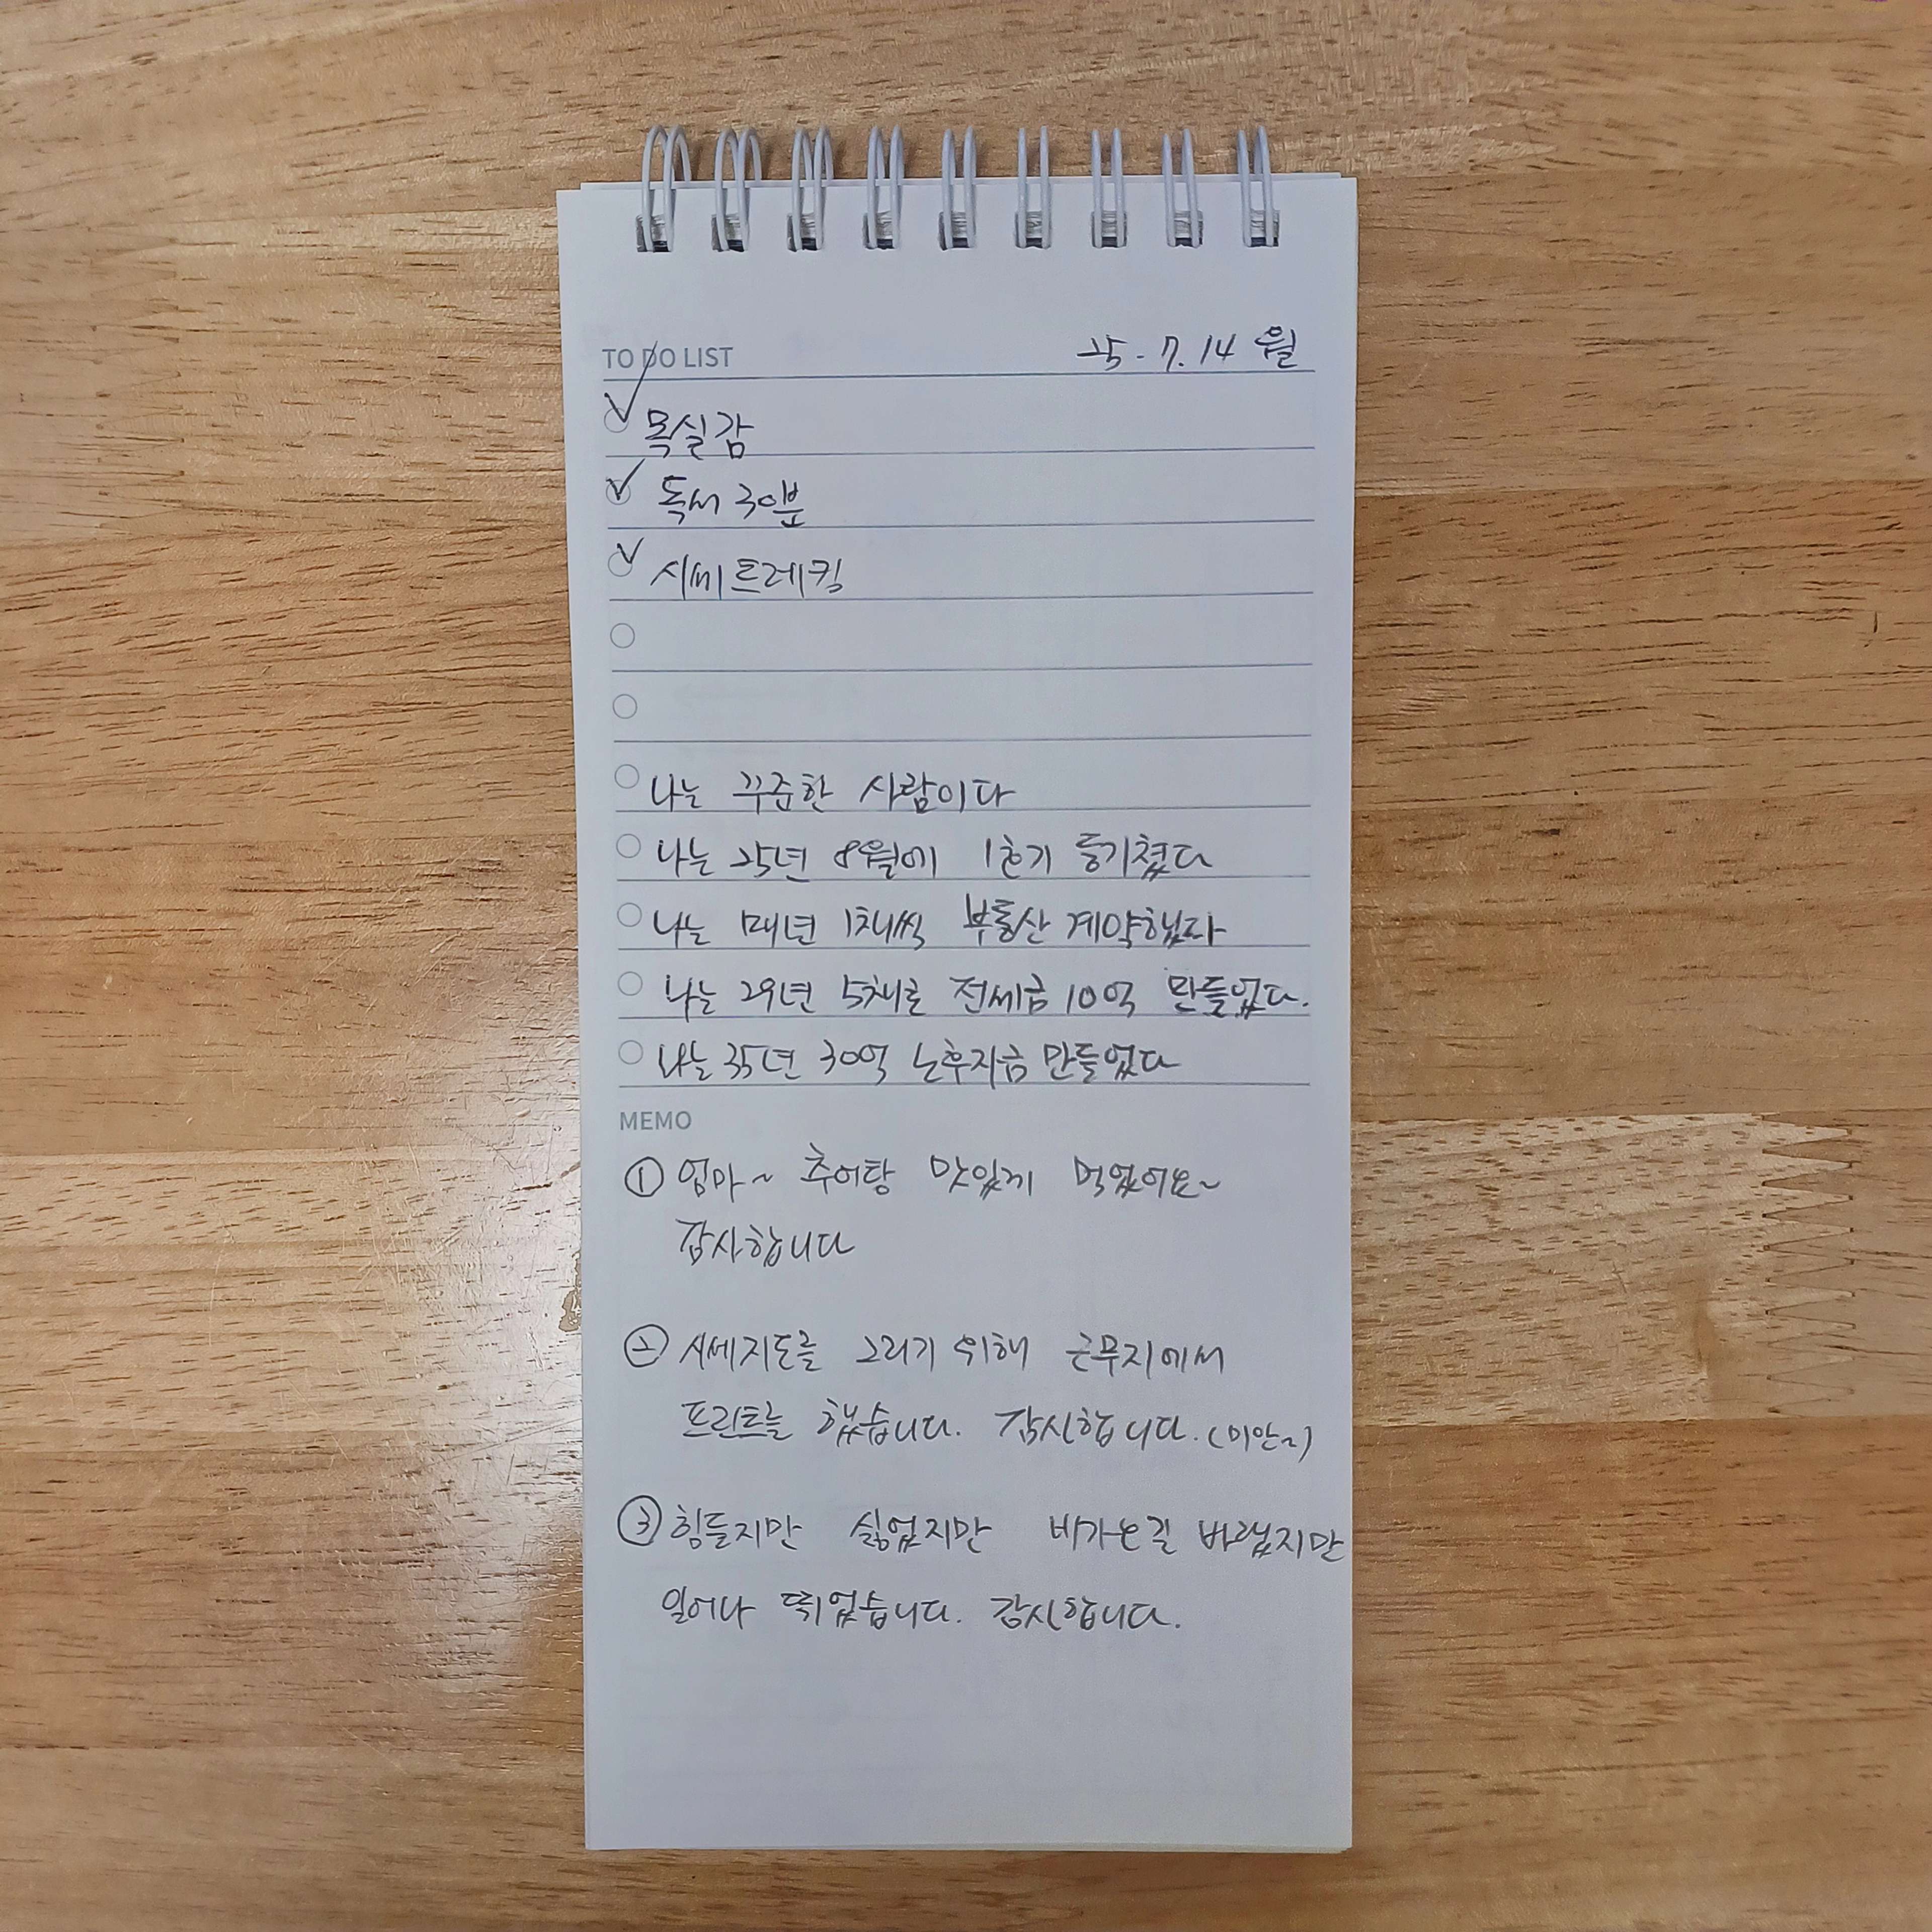 TO DO LIST 25.7.14 월
목실감
독서 30분
시세트레킹
나는 꾸준한 사람이다
나는 25년 8월에 1호기 등기쳤다
나는 매년 1채씩 부동산 계약했다
나는 29년 5채로 전세금 10억 만들었다.
나는 35년 30억 노후자금 만들었다
MEMO
① 엄마~ 추어탕 맛있게 먹었어요~
감사합니다
② 시세지도를 그리기 위해 근무지에서
프린트를 했습니다. 감사합니다. (미안~)
③ 힘들지만 싫었지만 비가오길 바랬지만
일어나 뛰었습니다. 감사합니다.